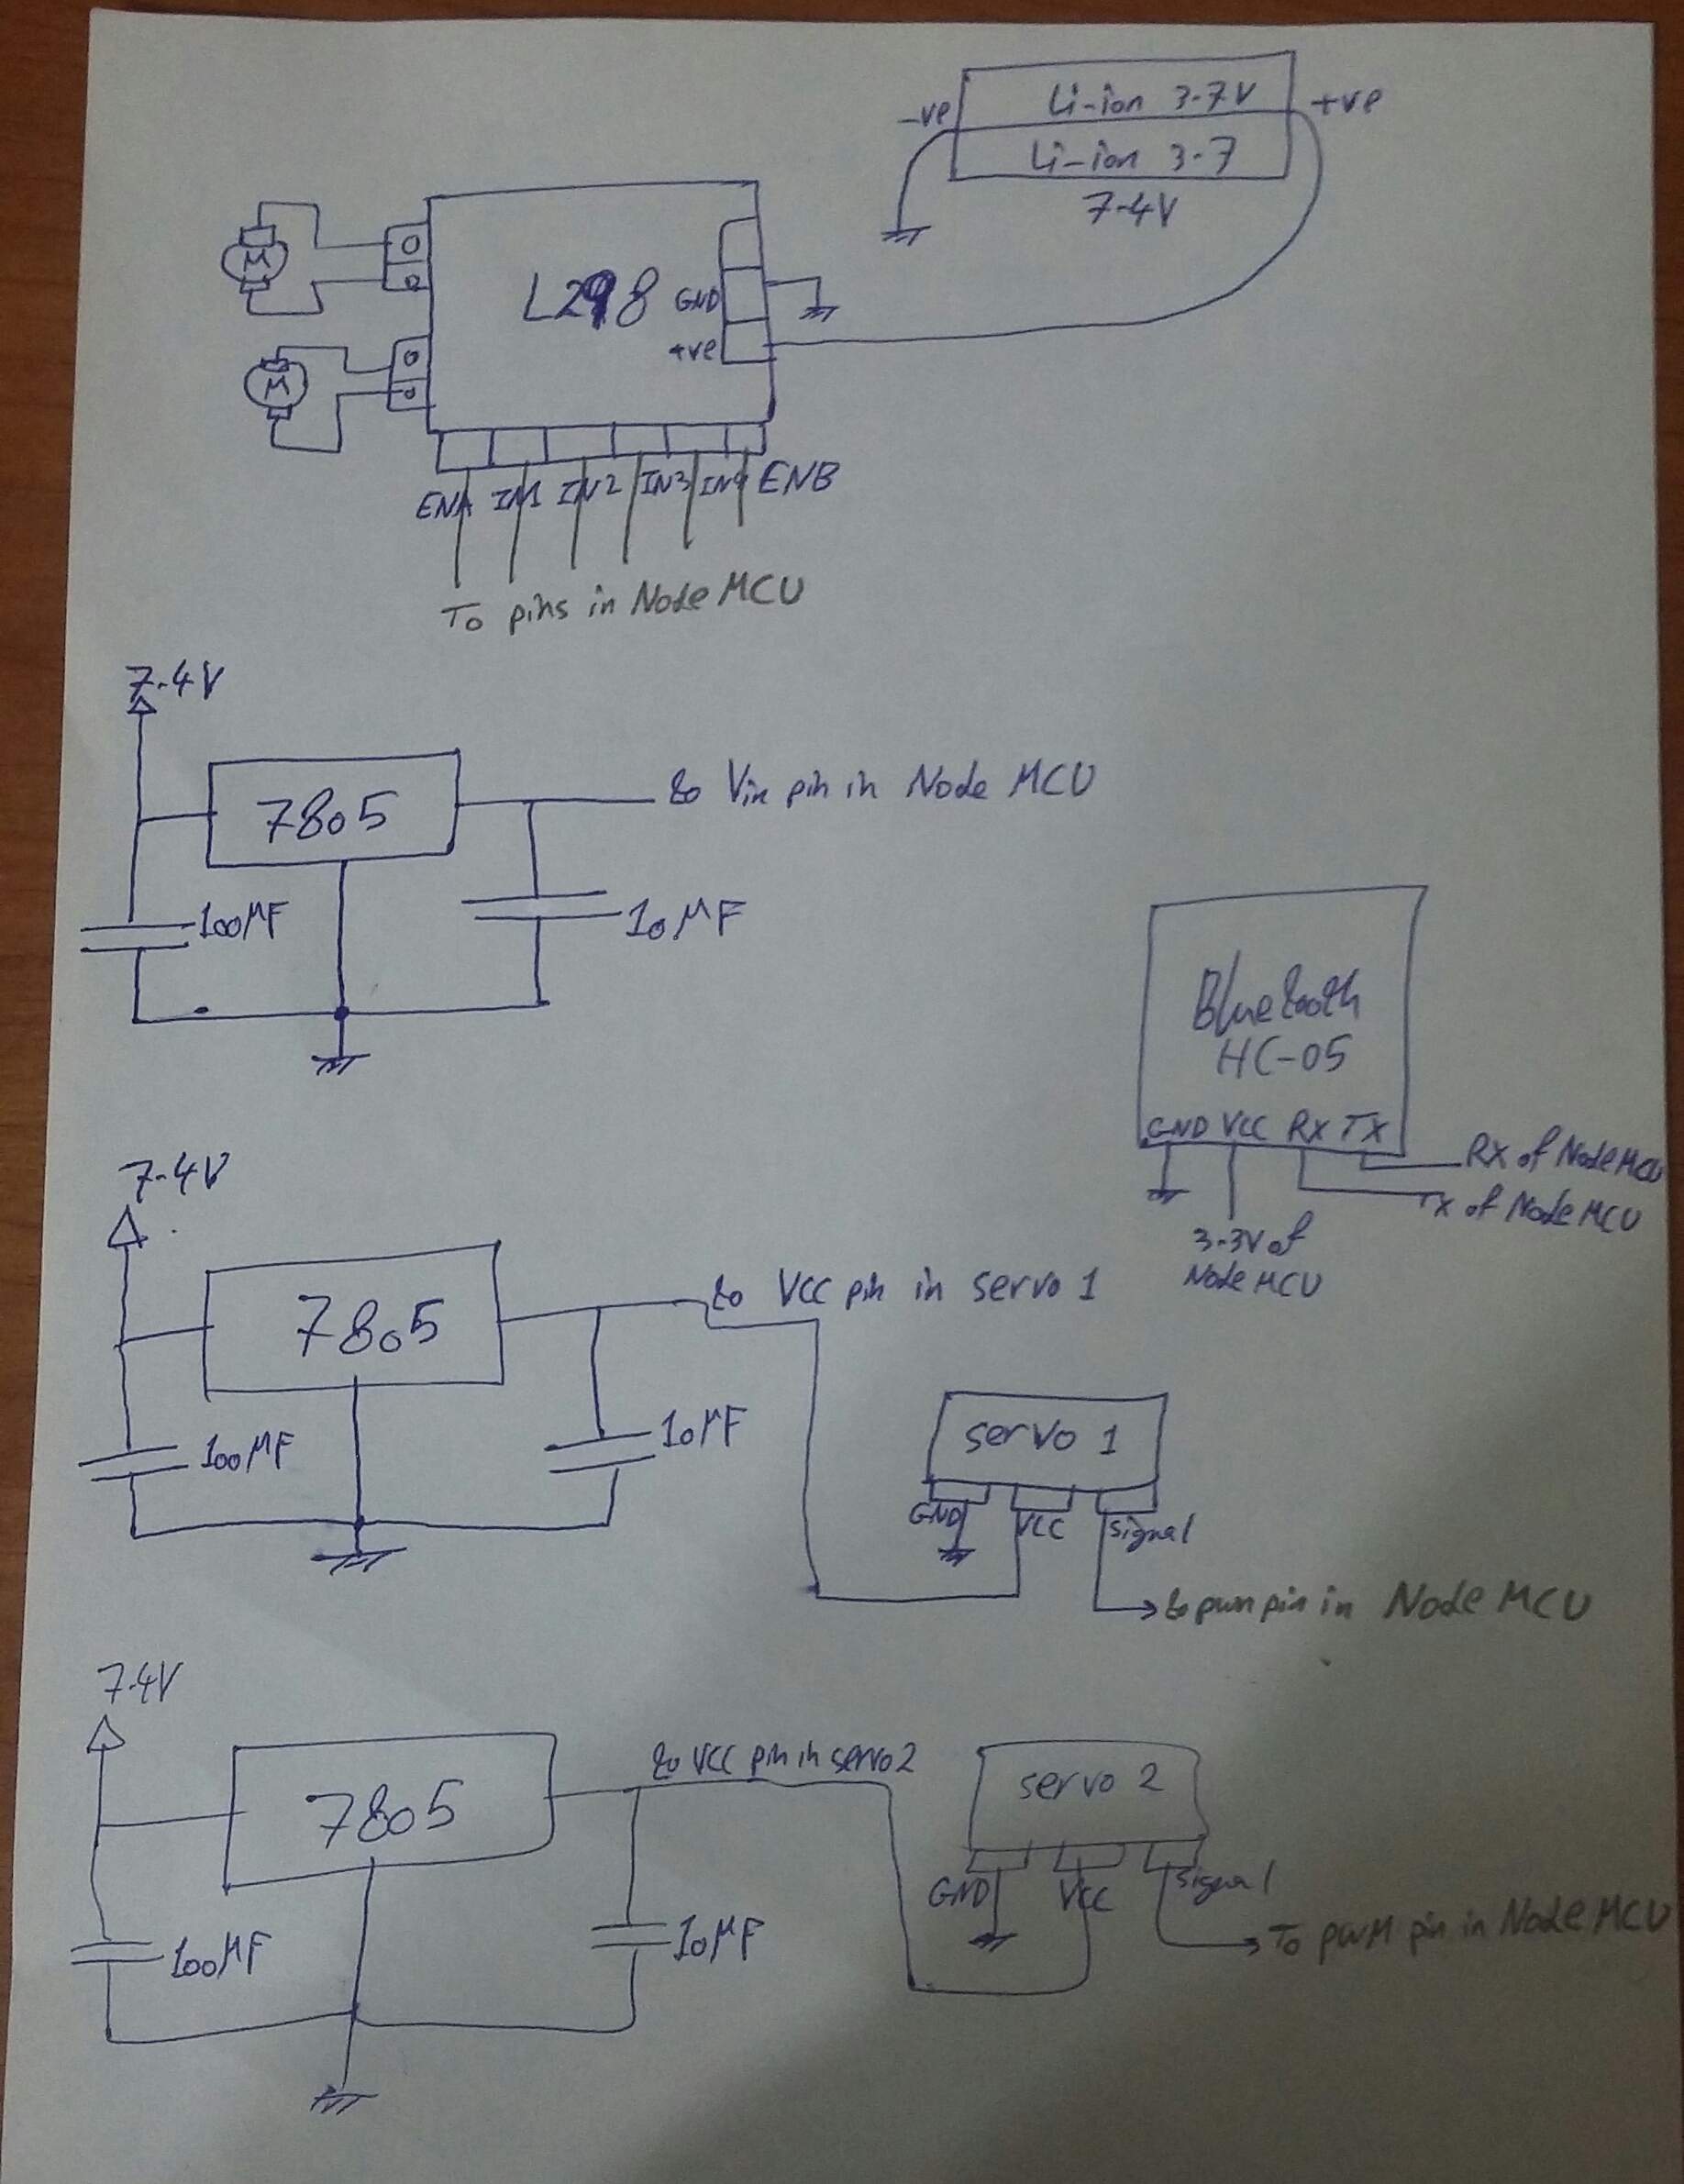 Li-ion 3.7V
-ve
+ve
Li-ion 3.7
7.4V
M
L298
GND
+ve
M
ENA IN1 IN2 IN3 IN4 ENB
To pins in Node MCU
7.4V
7805
to Vin pin in Node MCU
100µF
10µF
Bluetooth
HC-05
GND VCC RX TX
RX of Node MCU
TX of Node MCU
3.3V of
Node MCU
7.4V
7805
to VCC pin in servo 1
100µF
10µF
servo 1
GND VCC signal
to pwm pin in Node MCU
7.4V
7805
to VCC pin in servo 2
100µF
10µF
servo 2
GND VCC signal
To PWM pin in Node MCU